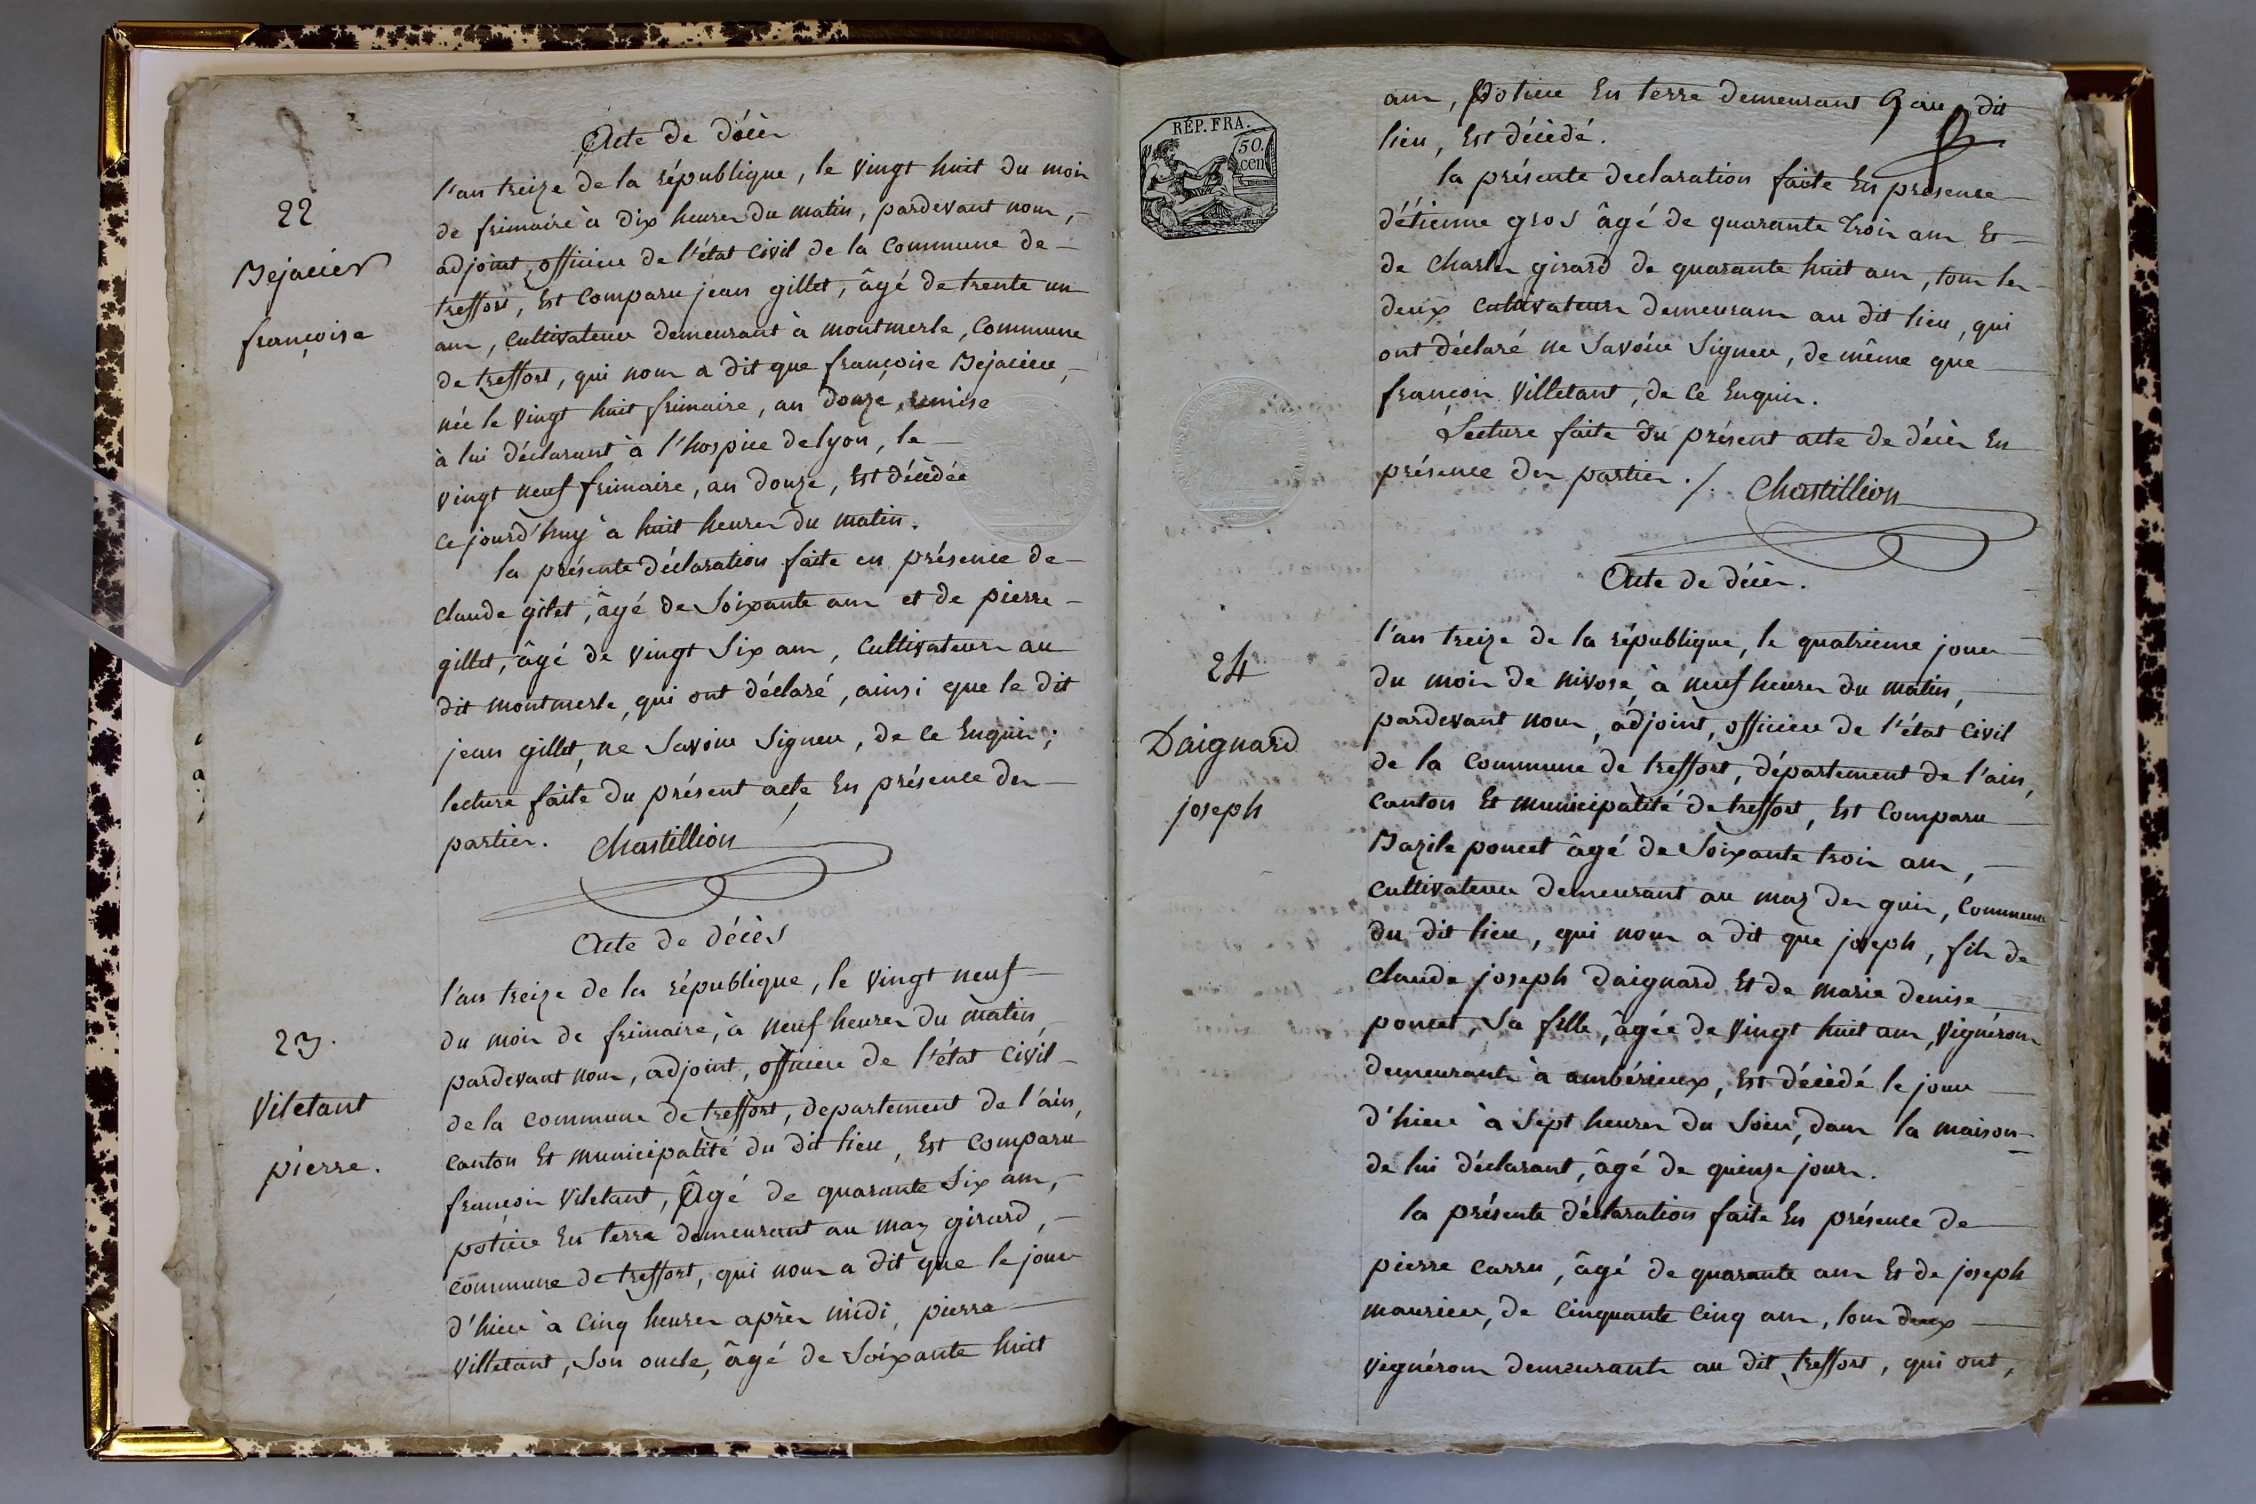 22
Bejacier
françoise
Acte de décès
l'an treize de la république, le vingt huit du mois
de frimaire à dix heures du matin, pardevant nous,
adjoint, officier de l'état civil de la commune de
treffort, Est comparu jean gillet, âgé de trente un
ans, cultivateur demeurant à montmerle, commune
de treffort, qui nous a dit que françoise Bejacier,
née le vingt huit frimaire, an douze, remise
à lui déclarant à l'hospice de lyon, le
vingt neuf frimaire, an douze, Est décèdée
ce jourd'huy à huit heures du matin.
la présente déclaration faite en présence de
claude gilet, âgé de Soixante ans et de pierre
gillet, âgé de vingt Six ans, cultivateurs au
dit montmerle, qui ont déclaré, ainsi que le dit
jean gillet, ne Savoir Signer, de ce Enquis;
lecture faite du présent acte En présence des
parties. Chastillion
23.
Viletant
pierre.
Acte de décès
l'an treize de la république, le vingt neuf
du mois de frimaire, à neuf heures du matin
pardevant nous, adjoint, officier de l'état civil
de la commune de treffort, departement de l'ain,
canton Et municipalité du dit lieu, Est comparu
françois viletant, Agé de quarante Six ans,
potier En terre demeurant au maz girard,
commune de treffort, qui nous a dit que le jour
d'hier à cinq heures après midi, pierre
villetant, Son oncle, âgé de Soixante huit
RÉP. FRA.
50.
cen
ans, potier En terre demeurant au dit
lieu, Est décèdé.
la présente declaration faite En présence
d'étienne gros âgé de quarante trois ans Et
de charles girard de quarante huit ans, tous les
deux cultivateurs demeurans au dit lieu, qui
ont déclaré ne Savoir Signer, de même que
françois villetant, de ce Enquis.
Lecture faite du présent acte de décès En
présence des parties ./. Chastillion
24
Daignard
joseph
Acte de décès.
l'an treize de la république, le quatrieme jour
du mois de nivose, à neuf heures du matin,
pardevant nous, adjoint, officier de l'état civil
de la commune de treffort, département de l'ain,
canton Et municipalité de treffort, Est comparu
Bazile poncet âgé de Soixante trois ans,
cultivateur demeurant au maz des guis, commune
du dit lieu, qui nous a dit que joseph, fils de
claude joseph Daignard Et de marie denise
poncet, Sa fille, âgée de vingt huit ans, vignérons
demeurants à ambérieux, Est décèdé le jour
d'hier à Sept heures du Soir, dans la maison
de lui déclarant, âgé de quinze jours.
la présente déclaration faite En présence de
pierre carru, âgé de quarante ans Et de joseph
maurier, de cinquante cinq ans, tous deux
vignérons demeurants au dit treffort, qui ont,